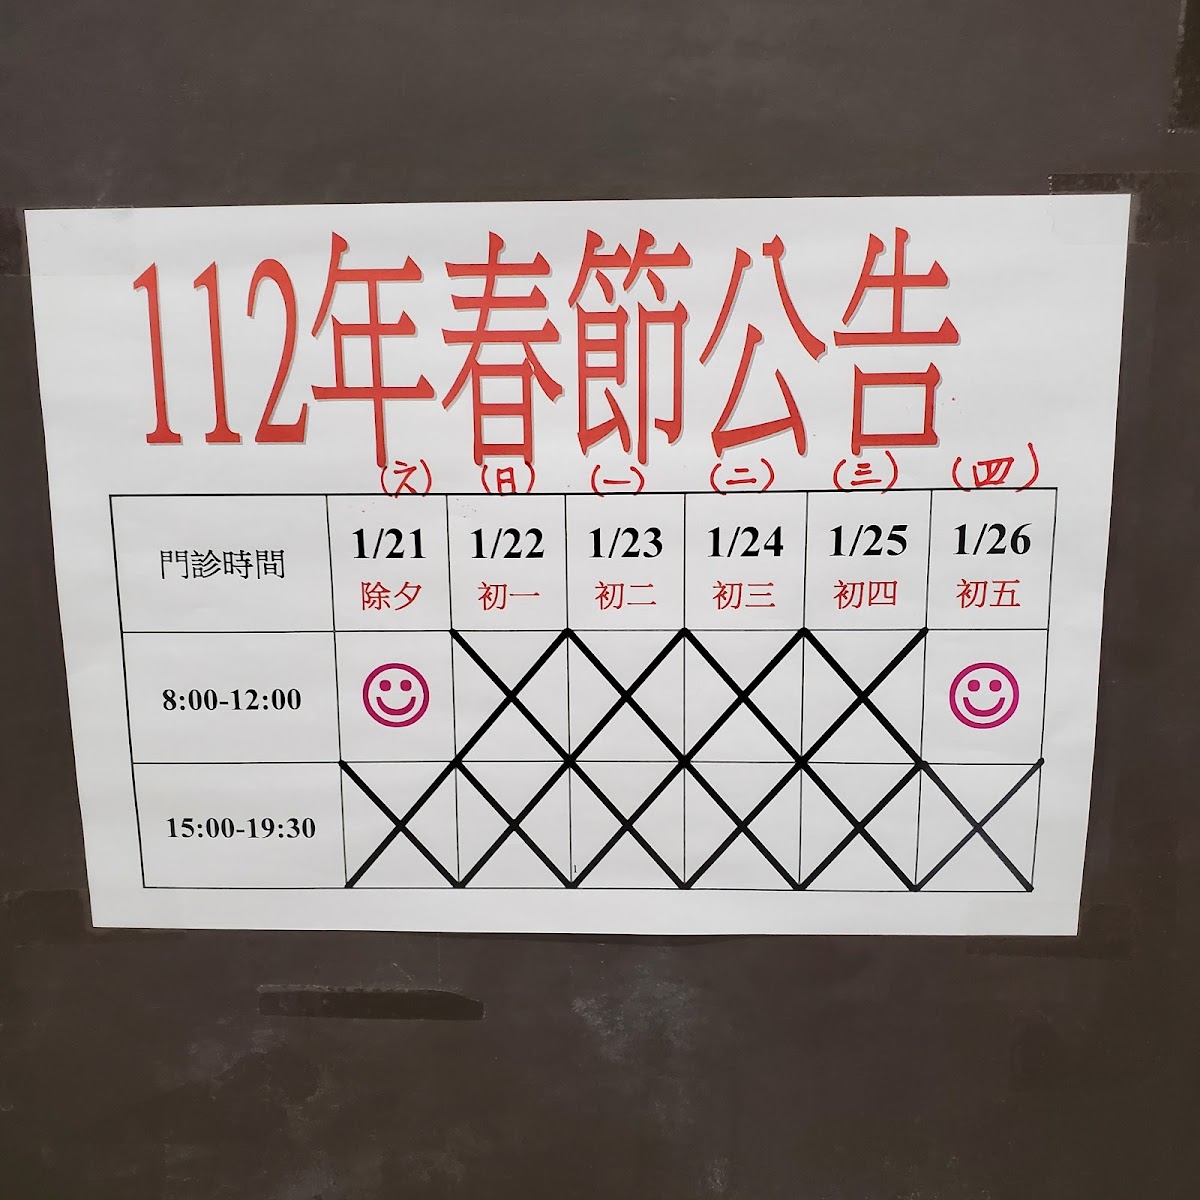 112年春節公告
(六) (日) (一) (二) (三) (四)
門診時間 1/21 1/22 1/23 1/24 1/25 1/26
除夕 初一 初二 初三 初四 初五
8:00-12:00
15:00-19:30
1